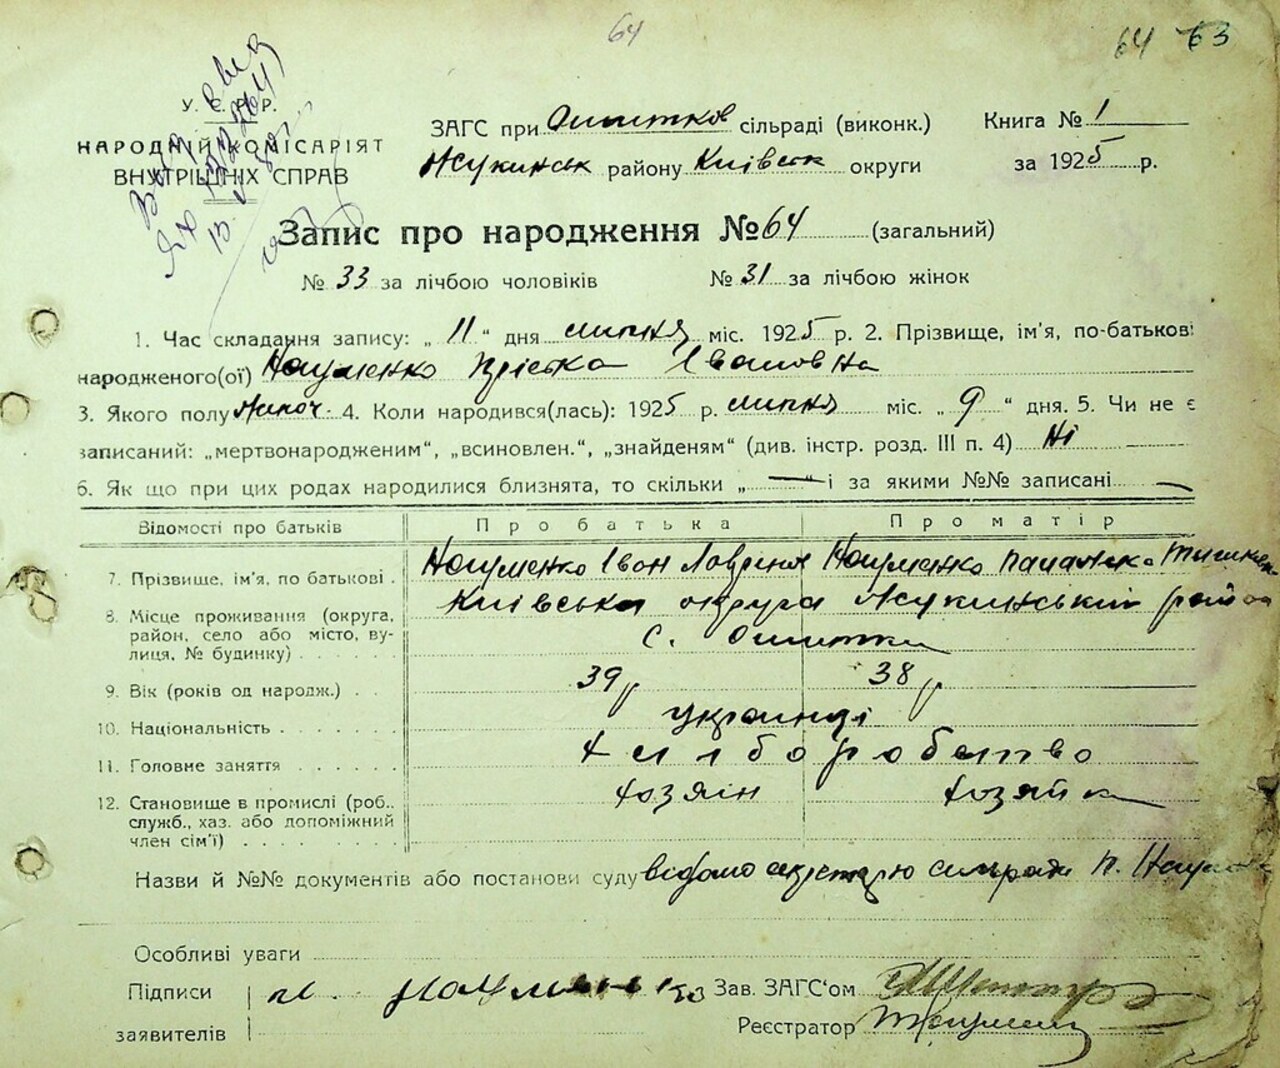 64
64 63
У. С. Р. Р.
НАРОДНІЙ КОМІСАРІЯТ
ВНУТРІШНІХ СПРАВ
ЗАГС при Ошитков сільраді (виконк.)
Книга № 1
Жукинськ району Київськ округи
за 1925 р.
Запис про народження № 64 (загальний)
№ 33 за лічбою чоловіків № 31 за лічбою жінок
1. Час складання запису: „ 11 “ дня липня міс. 1925 р. 2. Прізвище, ім'я, по-батькові
народженого(ої) Науменко Пріська Івановна
3. Якого полу жіноч. 4. Коли народився(лась): 1925 р. липня міс. „ 9 “ дня. 5. Чи не є
записаний: „мертвонародженим“, „всиновлен.“, „знайденям“ (див. інстр. розд. III п. 4) Ні
6. Як що при цих родах народилися близнята, то скільки „ — “ і за якими №№ записані —
Відомості про батьків Про батька Про матір
7. Прізвище, ім'я, по батькові . Науменко Іван Науменко
8. Місце проживання (округа, Київська округа Жукинський район
район, село або місто, ву-
лиця, № будинку) . . . . . . с. Ошитки
9. Вік (років од народж.) . . 39 р 38 р
10. Національність . . . . . . . українці
11. Головне заняття . . . . . . хліборобство
12. Становище в промислі (роб., хозяін хозяйка
служб., хаз. або допоміжний
член сім'ї) . . . . . . . . .
Назви й №№ документів або постанови суду відомо секретарю сильради П.
Особливі уваги
Підписи Науменко Зав. ЗАГС'ом
заявителів Реєстратор